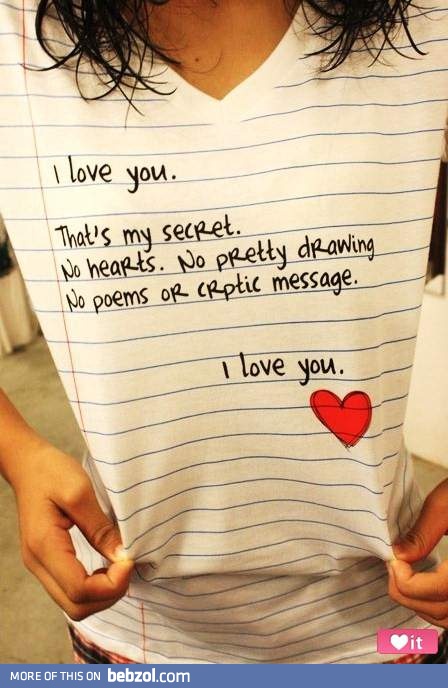 I love you.
That's my secret.
No hearts. No pretty drawing
No poems or crptic message.
I love you.
it
MORE OF THIS ON bebzol.com